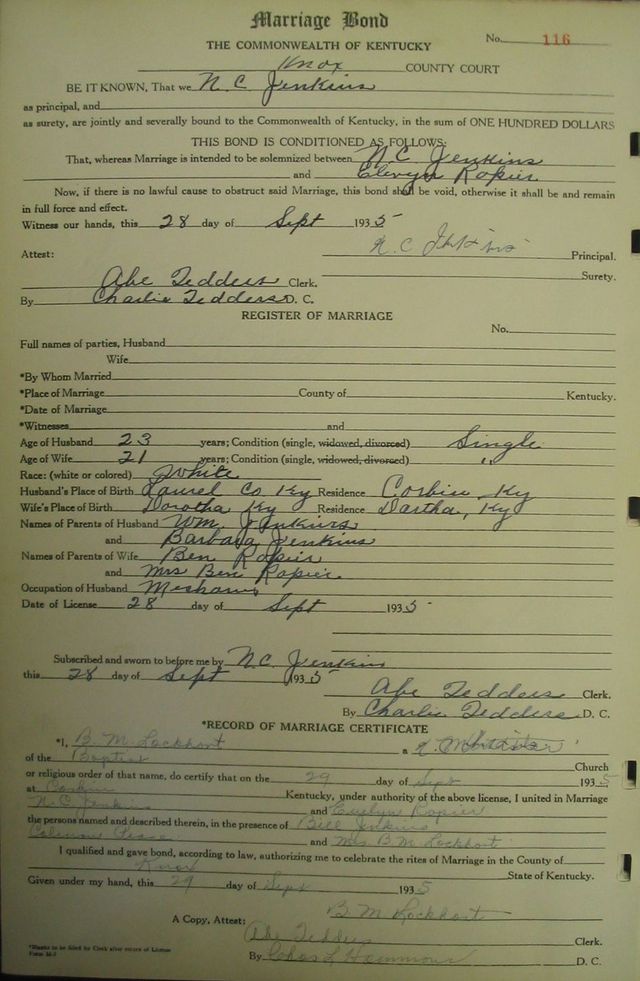 Marriage Bond
THE COMMONWEALTH OF KENTUCKY
No. 116
Knox COUNTY COURT
BE IT KNOWN, That we N. C. Jenkins
as principal, and
as surety, are jointly and severally bound to the Commonwealth of Kentucky, in the sum of ONE HUNDRED DOLLARS
THIS BOND IS CONDITIONED AS FOLLOWS:
That, whereas Marriage is intended to be solemnized between N. C. Jenkins
and Elevyn Ropier
Now, if there is no lawful cause to obstruct said Marriage, this bond shall be void, otherwise it shall be and remain
in full force and effect.
Witness our hands, this 28 day of Sept 1935
N. C. Principal.
Attest:
Surety.
Abe Tedders Clerk.
By Charlie Tedders D. C.
REGISTER OF MARRIAGE
No.
Full names of parties, Husband
Wife
*By Whom Married
*Place of Marriage County of Kentucky.
*Date of Marriage
*Witnesses and
Age of Husband 23 years; Condition (single, widowed, divorced) Single
Age of Wife 21 years; Condition (single, widowed, divorced) "
Race: (white or colored) White
Husband's Place of Birth Laurel Co Ky Residence Corbin, Ky
Wife's Place of Birth Dorotha Ky Residence Dartha, Ky
Names of Parents of Husband Wm. Jenkins
and Barbara Jenkins
Names of Parents of Wife Ben Ropier
and Mrs Ben Ropier
Occupation of Husband
Date of License 28 day of Sept 1935
Subscribed and sworn to before me by N. C. Jenkins
this 28 day of Sept 1935
Abe Tedders Clerk.
By Charlie Tedders D. C.
*RECORD OF MARRIAGE CERTIFICATE
*I, B. M. Lockhart a
of the Baptist Church
or religious order of that name, do certify that on the 29 day of Sept 1935
at Corbin Kentucky, under authority of the above license, I united in Marriage
N. C. Jenkins and Evelyn Ropier
the persons named and described therein, in the presence of Bill Jenkins
Coleman and Mrs B. M. Lockhart
I qualified and gave bond, according to law, authorizing me to celebrate the rites of Marriage in the County of
Knox State of Kentucky.
Given under my hand, this 29 day of Sept 1935
B. M. Lockhart
A Copy, Attest:
Abe Tedders Clerk.
By Chas L Hammons D. C.
*Blanks to be filled by Clerk after return of License